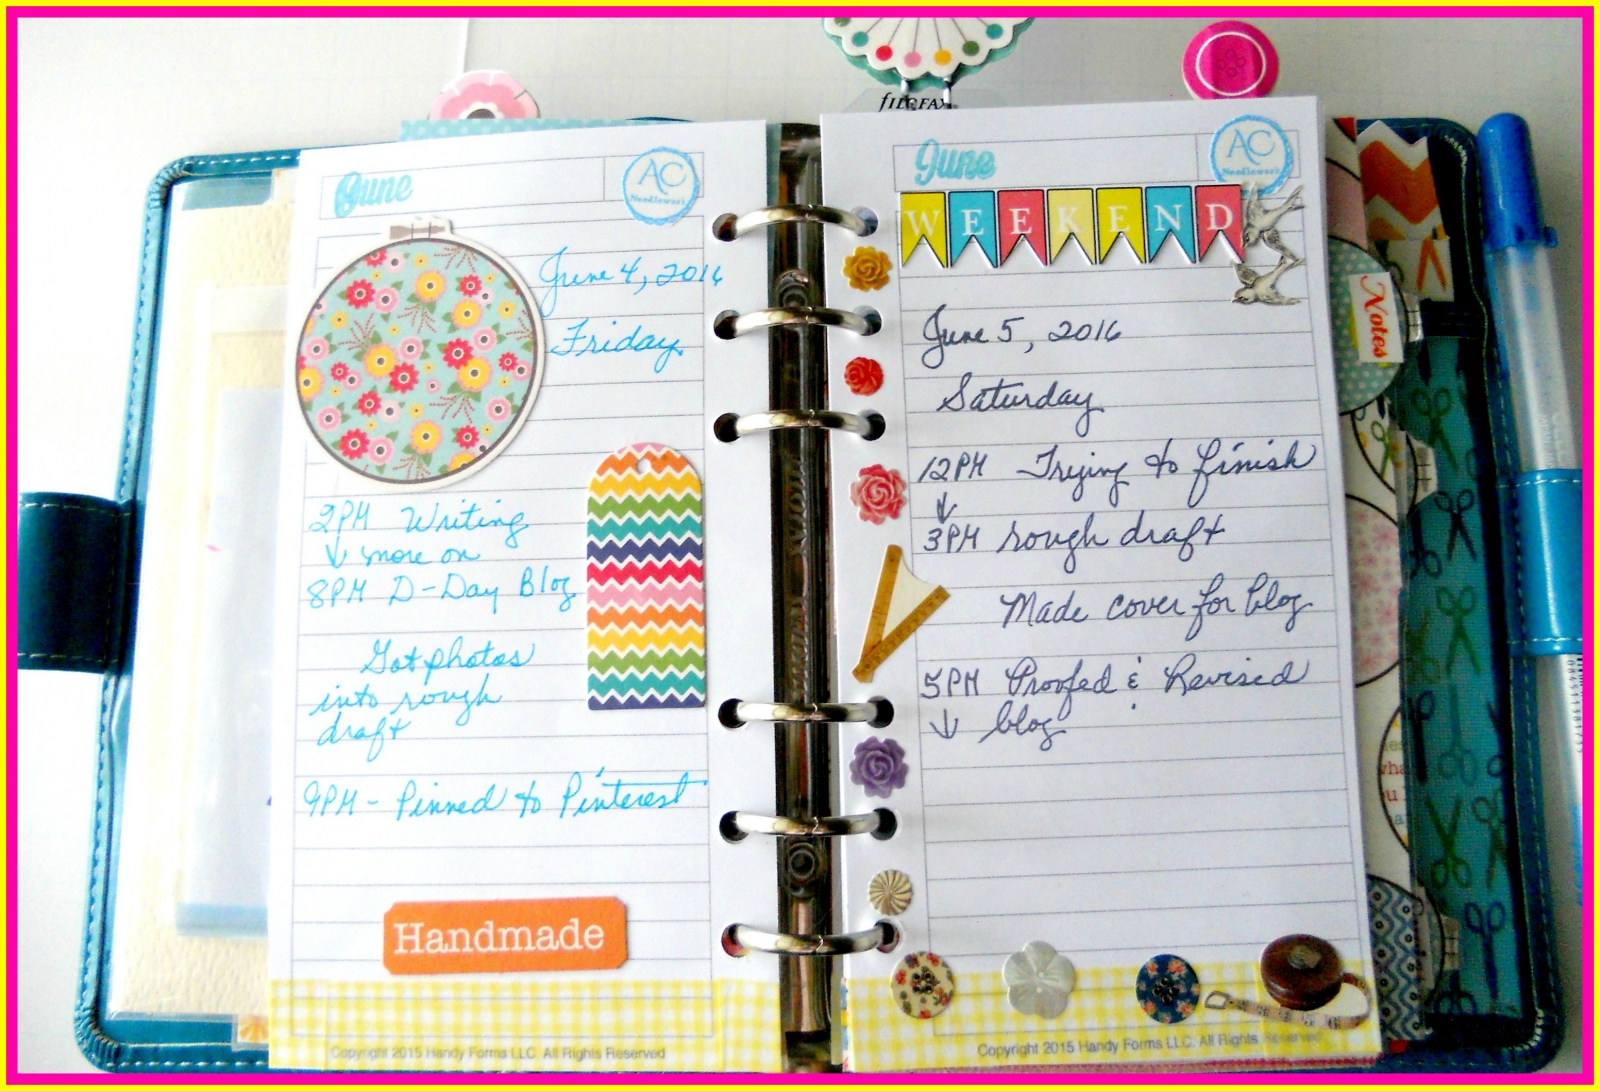 FILOFAX
June
AC
Needlework
June 4, 2016
Friday
2PM Writing
↓ more on
8PM D-Day Blog
Got photos
into rough
draft
9PM - Pinned to Pinterest
Handmade
Copyright 2015 Handy Forms LLC. All Rights Reserved
June
AC
Needlework
WEEKEND
June 5, 2016
Saturday
12PM Trying to finish
↓
3PM rough draft
Made cover for blog
5PM Proofed & Revised
↓ blog
Copyright 2015 Handy Forms LLC. All Rights Reserved
Notes